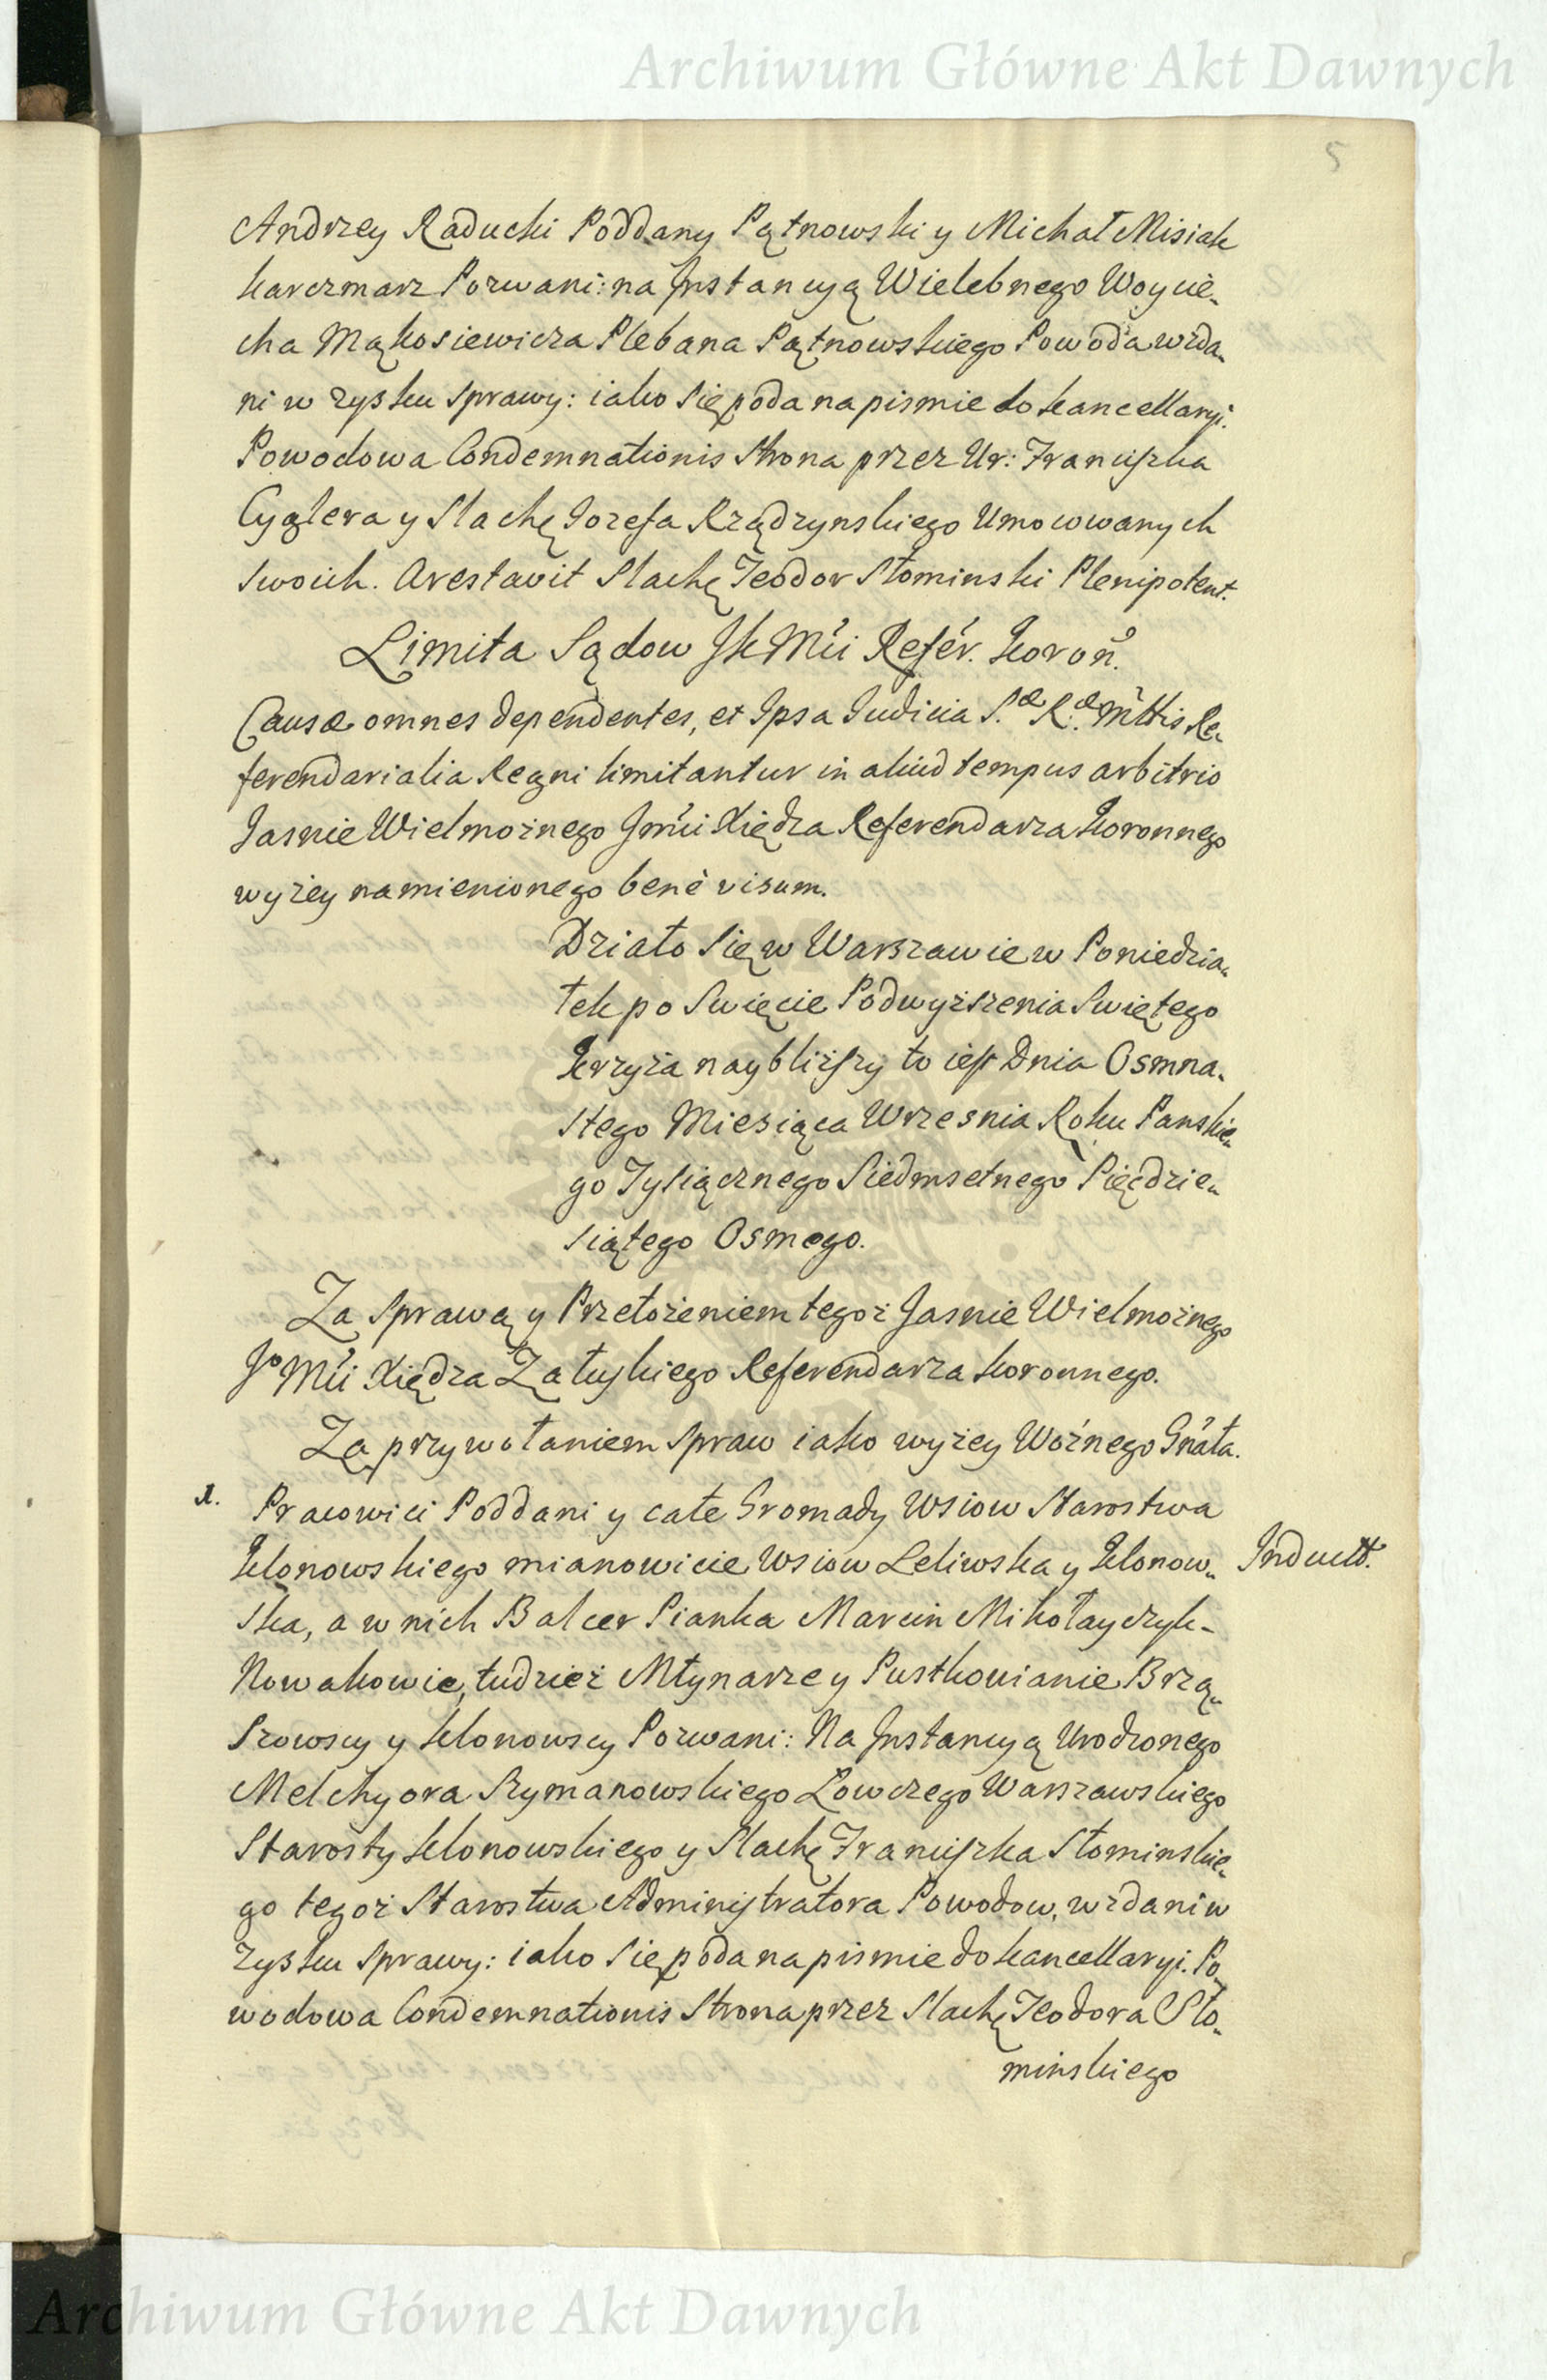 Archiwum Główne Akt Dawnych
5
Andrzey Raducki Poddany Pątnowski y Michał Misiak
karczmarz Pozwani: na Jnstancyą Wielebnego Woycie-
cha Mąkosiewicza Plebana Pątnowskiego Powoda wzda-
ni w zysku Sprawy: iako Się poda na pismie do kancellaryi.
Powodowa Condemnationis Strona przez Ur: Franciszka
Cyglera y Slachę Jozefa Rządzynskiego Umocowanych
Swoich. Arestavit Slachę Teodor Słominski Plenipotent.
Limita Sądow JK Mći Refer. Koroñ.
Causæ omnes dependentes, et Jpsa Judicia S.æ R.æ Mttis Re-
ferendarialia Regni limitantur in aliud tempus arbitrio
Jasnie Wielmożnego Jmći Xiędza Referendarza Koronnego
wyżey namienionego benè visum.
Działo Się w Warszawie w Poniedzia-
łek po Swięcie Podwyższenia Swiętego
Krzyża naybliższy to iest Dnia Osmna-
stego Miesiąca Wrzesnia Roku Panskie-
go Tysiącznego Siedmsetnego Pięćdzie-
siątego Osmego.
Za Sprawą y Przełożeniem tegoż Jasnie Wielmożnego
Jº Mći Xiędza Załuskiego Referendarza koronnego.
Za przywołaniem Spraw iako wyżey Woźnego Gñała.
1. Pracowici Poddani y całe Gromady Wsiow Starostwa
Klonowskiego mianowicie Wsiow Leliwska y Klonow- Induct.
ska, a w nich Balcer Pianka Marcin Mikołayczyk-
Nowakowie, tudzież Młynarze y Pustkowianie Brzą-
szowscy y klonowscy Pozwani: Na Jnstancyą Urodzonego
Melchyora Szymanowskiego Łowczego Warszawskiego
Starosty klonowskiego y Slachę Franciszka Słominskie-
go tegoż Starostwa Administratora Powodow, wzdani w
zysku Sprawy: iako Się poda na pismie do kancellaryi. Po-
wodowa Condemnationis Strona przez Slachę Teodora Sło-
minskiego
Archiwum Główne Akt Dawnych